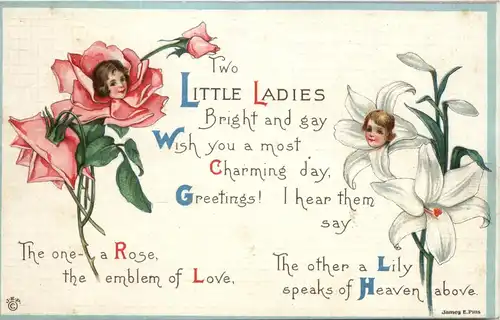 Two
LITTLE LADIES
Bright and gay
Wish you a most
Charming day,
Greetings! I hear them
say
The one- a Rose,
the emblem of Love,
The other a Lily
speaks of Heaven above.
James E. Pitts